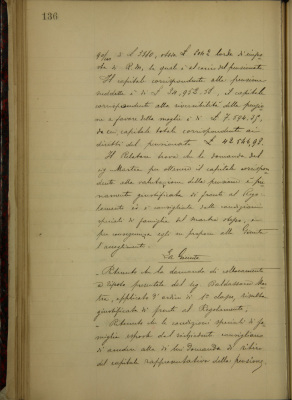 136
di L. 1880, ossia L. 2042 lorde di
di R. M. la quale è a carico del pensionato
Il capitale corrispondente alla pensione
suddetta è di L. 34,952.51, il capitale
corrispondente alla riversibilità della pensione
a favore della moglie è di L. 7,594.27,
da cui capitale totale corrispondente ai
diritti del pensionato L. 42.546,98.
Il Relatore trova che la domanda del
sig. Maestri per ottenere il capitale corrispon
dente alla valutazione della pensione è
giustificata di fronte al Rego
lamento ed è consigliata dalle condizioni
speciali di famiglia del Maestri stesso,
per conseguenza egli ne propone alla Giunta
l'accoglimento.
La Giunta
- Ritenuto che la domanda di collocamento
a riposo presentata dal sig. Baldassare Mae
stri, applicato d'ordine di 1a classe, risulta
giustificata di fronte al Regolamento.
- Ritenuto che le condizioni speciali di fa
miglia esposte dal richiedente consigliano
di accedere alla di lui domanda di ritiro
del capitale rappresentativo della pensione,